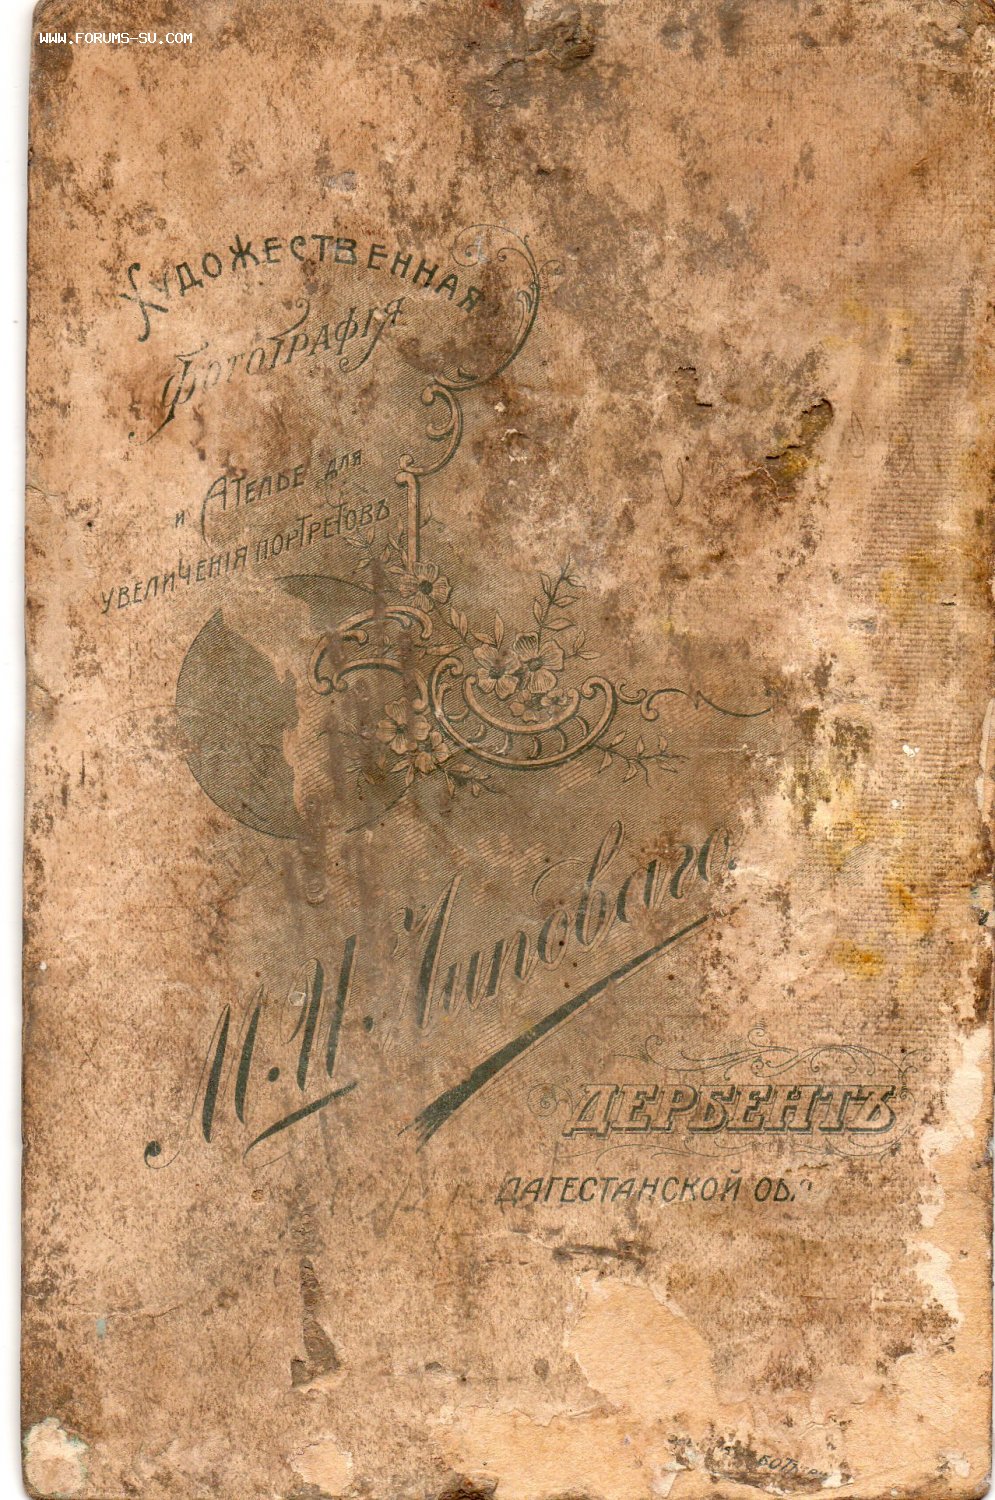 WWW.FORUMS-SU.COM
Художественная
Фотографія
и Ателье для
увеличенія портретовъ
М. И. Чиповаго.
ДЕРБЕНТЪ
ДАГЕСТАНСКОЙ ОБ.